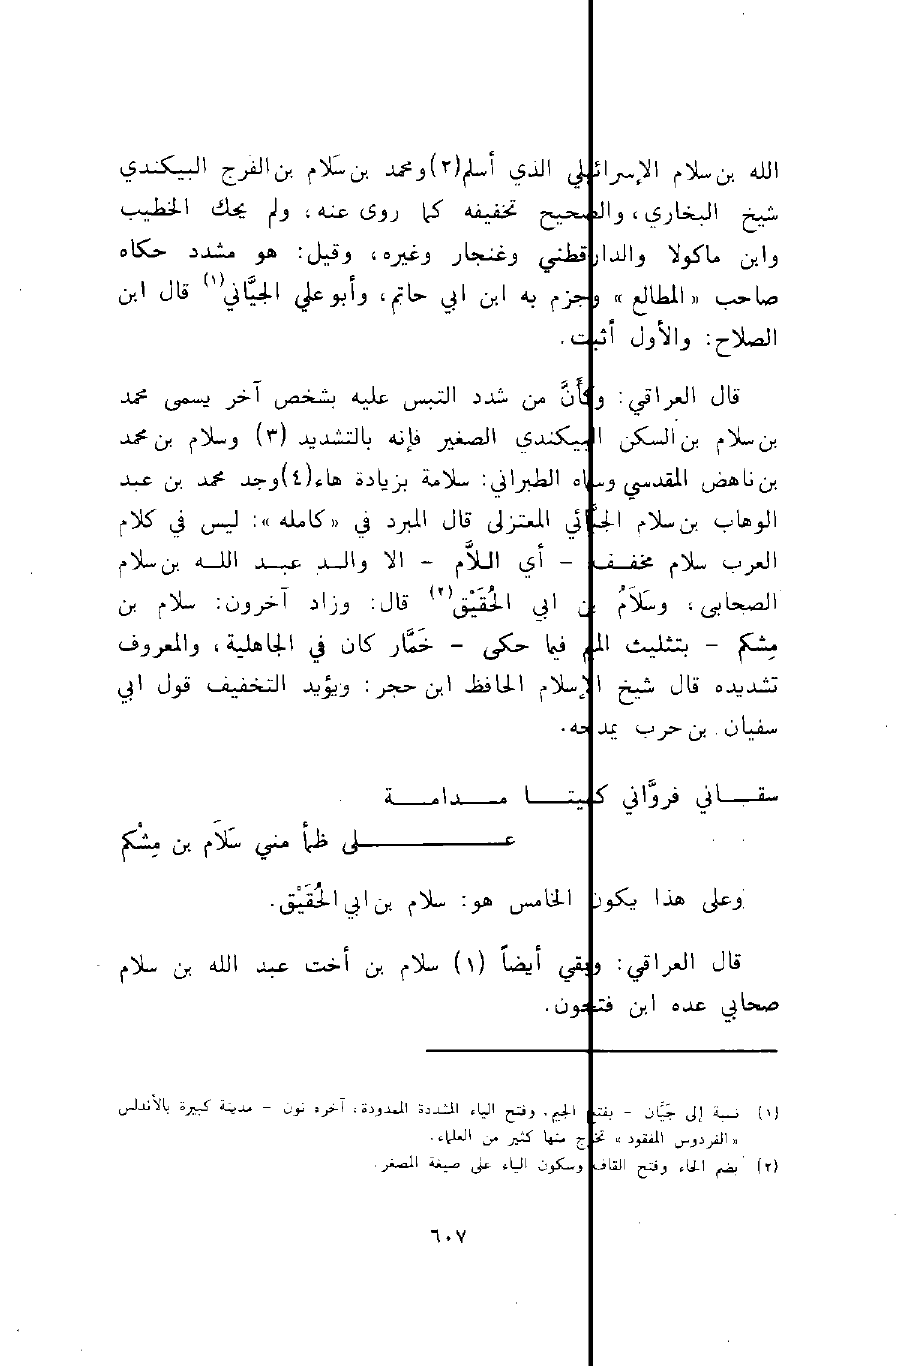 الله بن سلام الإسرائيلي الذي أسلم (٢) ومحمد بن سَلَام بن الفرج البيكندي
شيخ البخاري، والصحيح تخفيفه كما روى عنه، ولم يحك الخطيب
وابن ماكولا والدارقطني وغنجار وغيره، وقيل: هو مشدد حكاه
صاحب «المطالع» وجزم به ابن ابي حاتم، وأبو علي الجيَّاني(١) قال ابن
الصلاح: والأول أثبت.
قال العراقي: وكأنَّ من شدد التبس عليه بشخص آخر يسمى محمد
بن سلام بن السكن البيكندى الصغير فإنه بالتشديد (٣) وسلام بن محمد
بن ناهض المقدسي وسماه الطبراني: سلامة بزيادة هاء (٤) وجد محمد بن عبد
الوهاب بن سلام الجبَّائي المعتزلى قال المبرد في «كامله»: ليس في كلام
العرب سلام مخفف - أي اللاَّم - الا والد عبد الله بن سلام
الصحابى، وسَلَامُ بن ابي الحُقَيْق(٢) قال: وزاد آخرون: سلام بن
مِشكم - بتثليث الميم فيما حكى - خَمَّار كان في الجاهلية، والمعروف
تشديده قال شيخ الإسلام الحافظ ابن حجر: ويؤيد التخفيف قول ابي
سفيان بن حرب يمدحه.
سقاني فروَّاني كميتا مدامة
على ظمأ مني سَلَام بن مِشْكم
وعلى هذا يكون الخامس هو: سلام بن ابي الحُقَيْق.
قال العراقي: وبقي أيضاً (١) سلام بن أخت عبد الله بن سلام
صحابي عده ابن فتحون.
(١) نسبة إلى جَيَّان - بفتح الجيم، وفتح الياء المشددة الممدودة، آخره نون - مدينة كبيرة بالأندلس
«الفردوس المفقود» تخرج منها كثير من العلماء.
(٢) بضم الحاء وفتح القاف وسكون الياء على صيغة المصغر.
٦٠٧